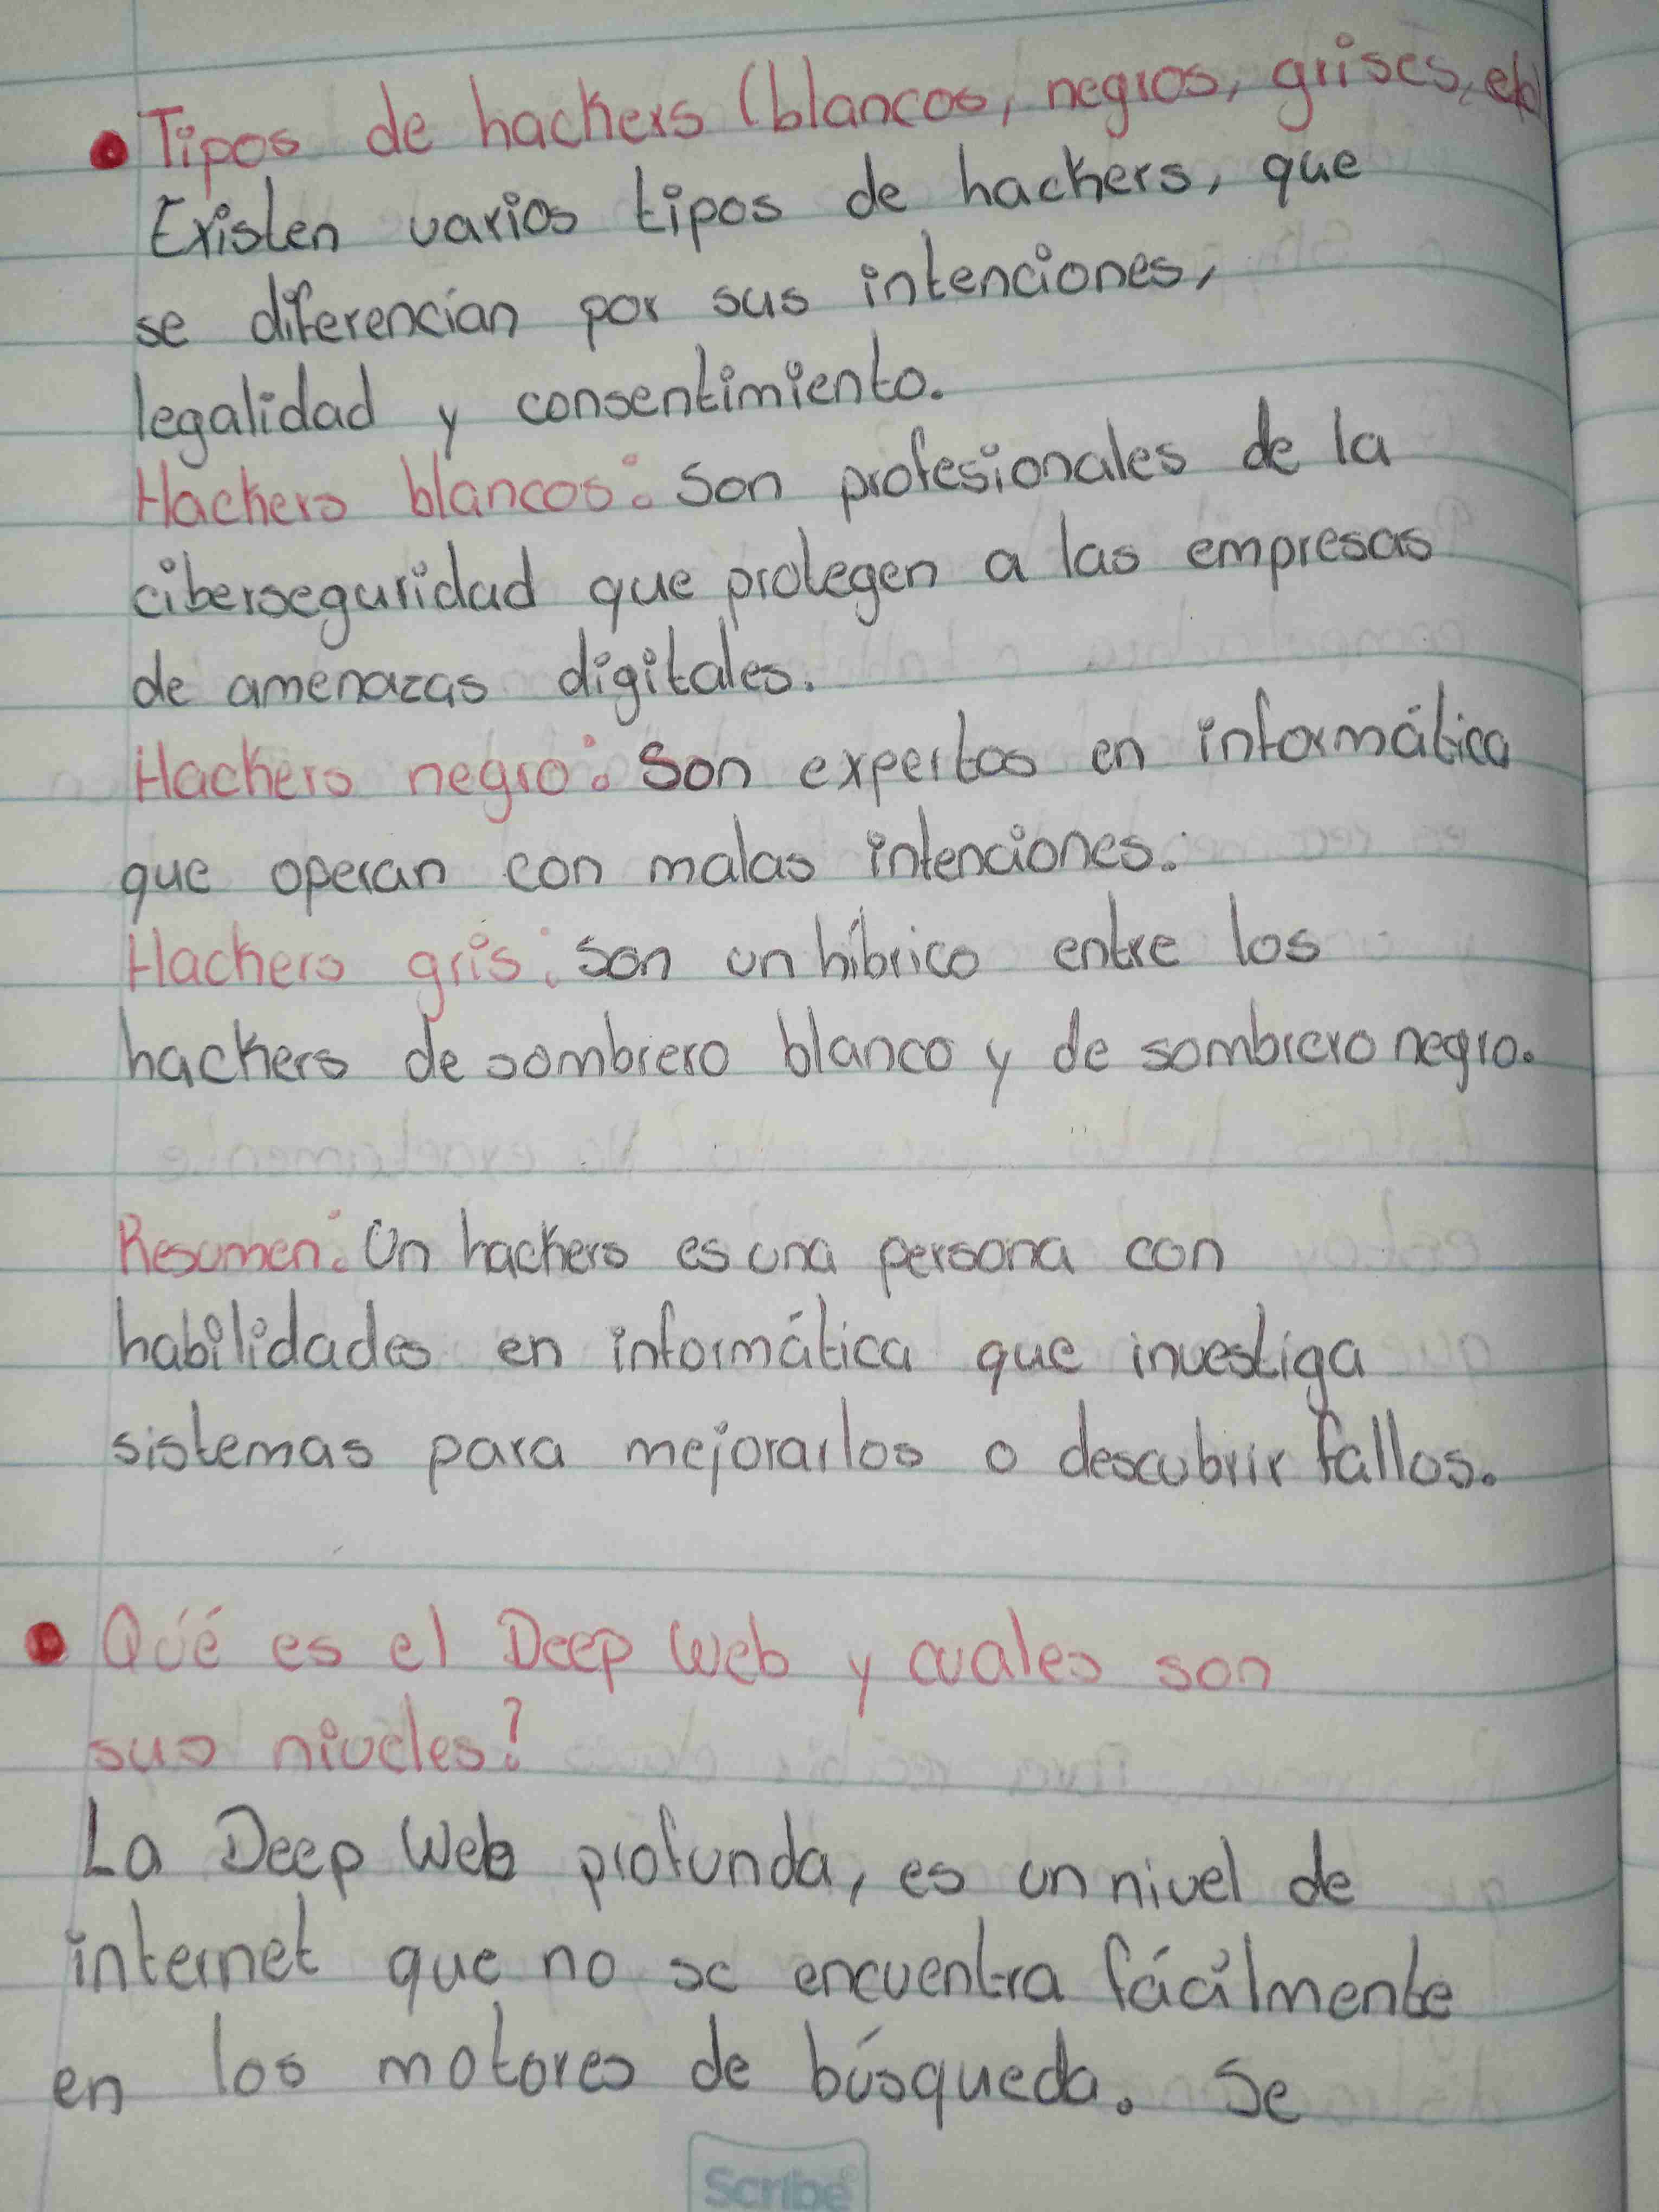 Tipos de hackers (blancos, negros, grises, etc)
Existen varios tipos de hackers, que
se diferencian por sus intenciones,
legalidad y consentimiento.
Hackers blancos: Son profesionales de la
ciberseguridad que protegen a las empresas
de amenazas digitales.
Hackers negro: Son expertos en informática
que operan con malas intenciones.
Hackers gris: son un híbrico entre los
hackers de sombrero blanco y de sombrero negro.
Resumen: Un hackers es una persona con
habilidades en informática que investiga
sistemas para mejorarlos o descubrir fallos.
Qué es el Deep Web y cuales son
sus niveles?
La Deep Web profunda, es un nivel de
internet que no se encuentra fácilmente
en los motores de búsqueda. Se
Scribe